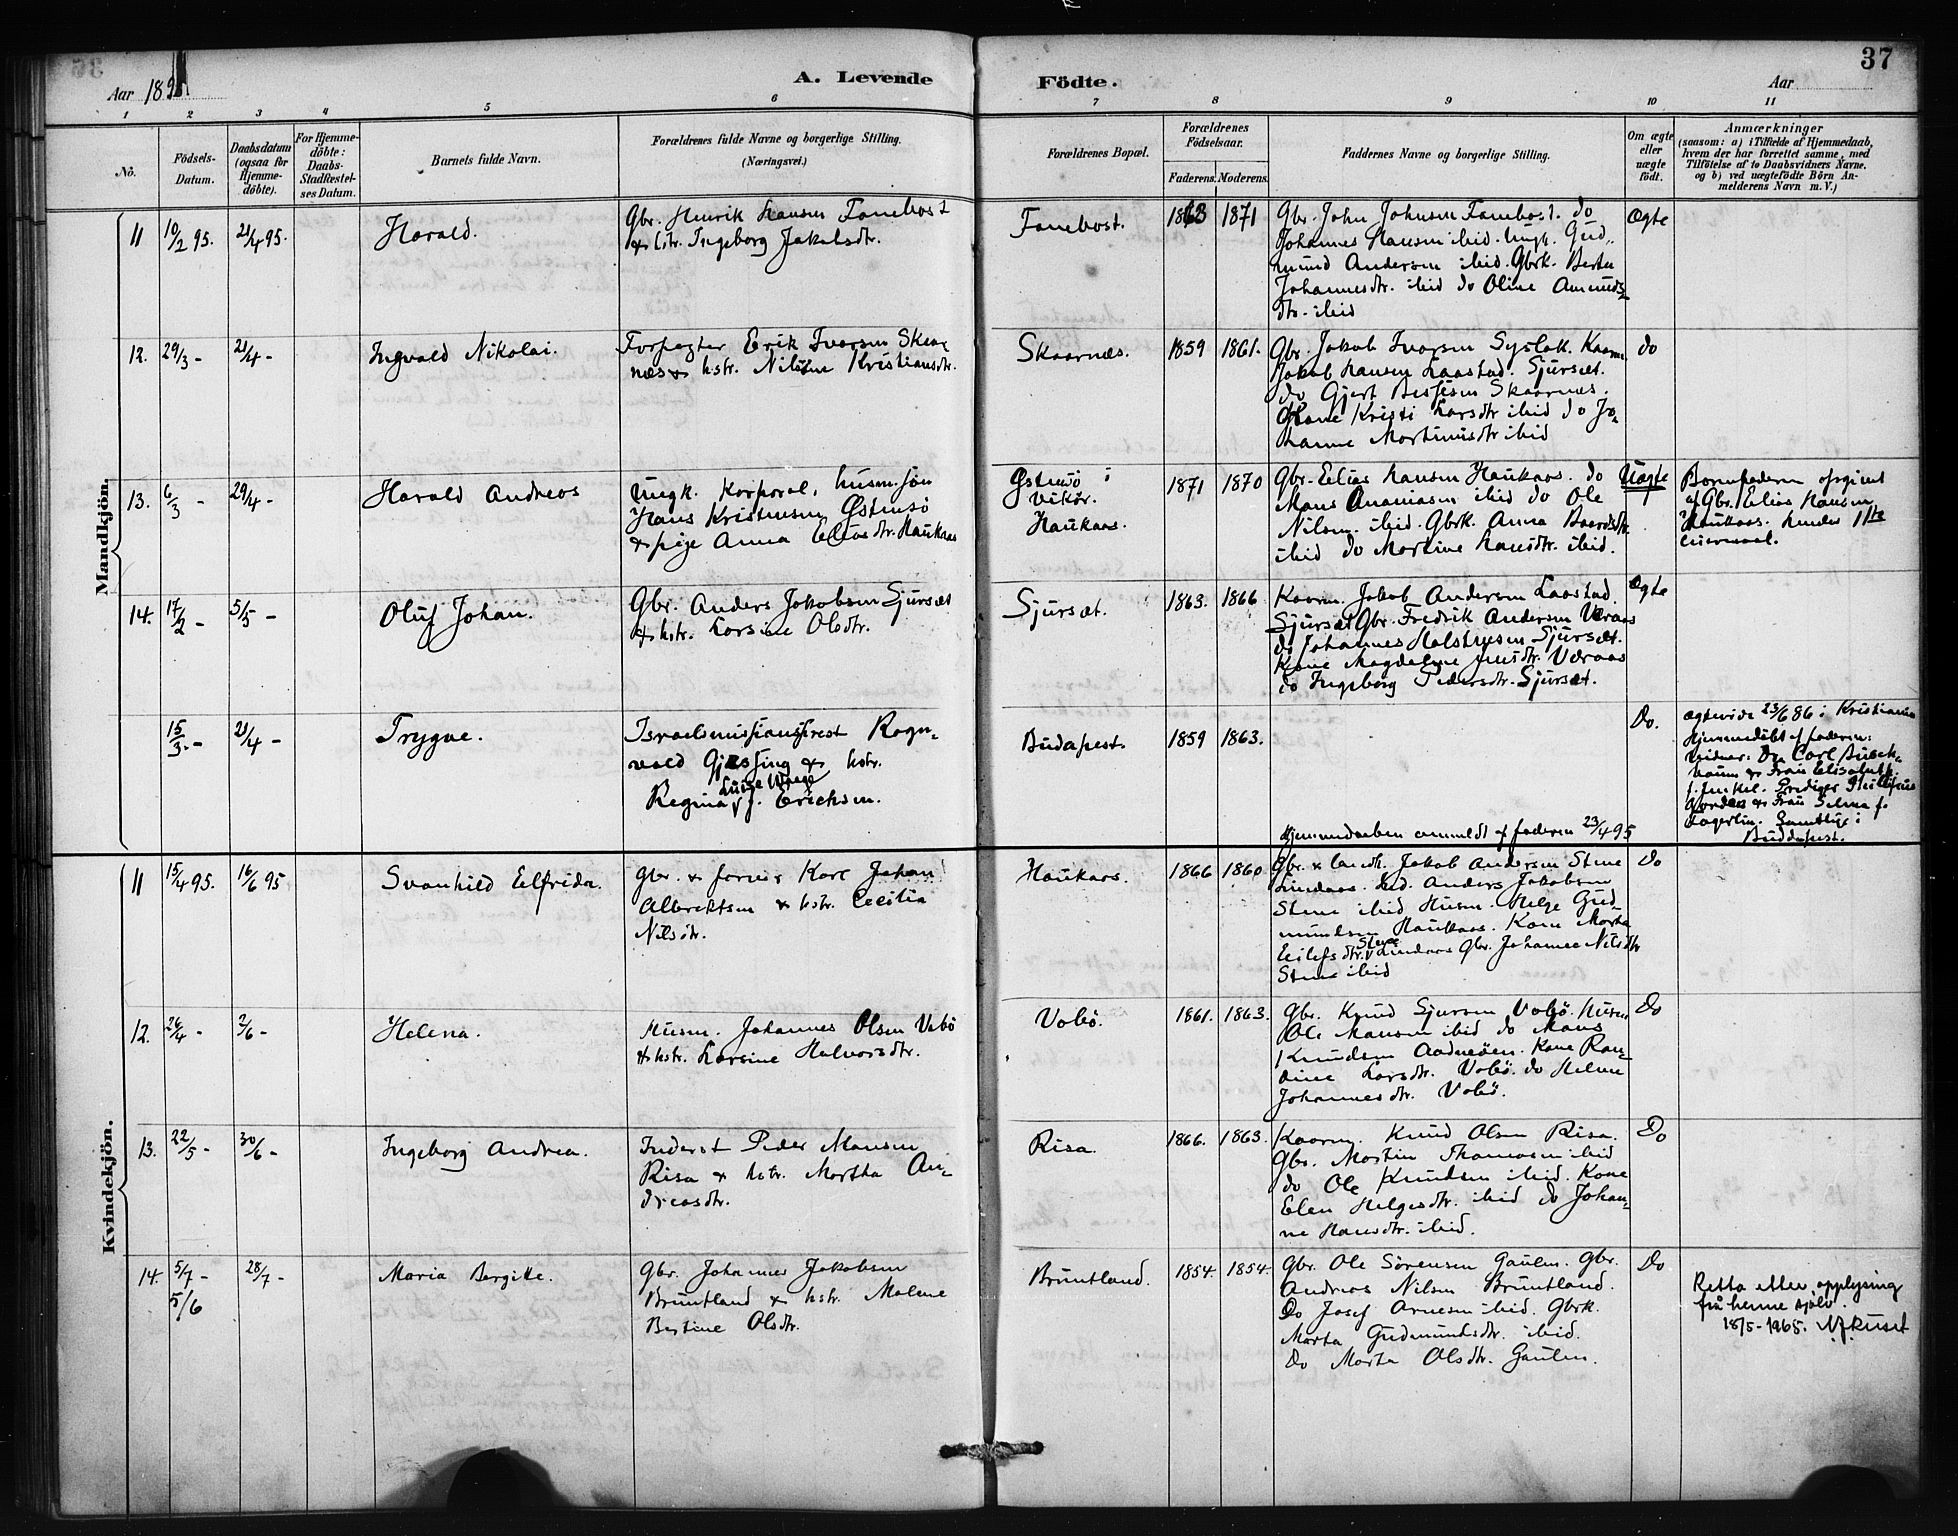 37
A. Levende Födte.
Aar 1895
Aar
1 2 3 4 5 6 7 8 9 10 11
No.
Födsels-
Datum.
Daabsdatum
(ogsaa for
Hjemme-
döbte).
For Hjemme-
döbte:
Daabs-
Stadfæstel-
ses Datum.
Barnets fulde Navn.
Forældrenes fulde Navne og borgerlige Stilling.
(Næringsvei.)
Forældrenes Bopæl.
Forældrenes
Födselsaar.
Faderens. Moderens.
Faddernes Navne og borgerlige Stilling.
Om ægte
eller
uægte
födt.
Anmærkninger
(saasom: a) i Tilfælde af Hjemmedaab,
hvem der har forrettet samme, med
Tilföielse af to Daabsvidners Navne,
og b) ved uægtefödte Börn An-
melderens Navn m. V.)
Mandkjön.
11
10/2 95.
21/4 95.
Harald.
Gbr. Henrik Hansen Fanebost
& hstr. Ingeborg Jakobsdtr.
Fanebost.
1863
1871
Gbr. John Johnsen Fanebost. do
Johannes Hansen ibid. Ungk. Gud-
mund Andersen ibid. Gbrk. Berta
Johannesdtr. ibid do Oline Amunds-
dtr. ibid
Ægte
12.
29/3 -
21/4 -
Ingvald Nikolai.
Forpagter Erik Ivarsen Skaar
næs & hstr. Kristiansdtr.
Skaarnæs.
1859
1861.
Gbr. Jakob Ivarsen Syslak. Kaarm
Jakob Hansen Laastad. Sjursæt.
do Gjert Skaarnæs.
Kone Kristi Larsdtr ibid do Jo-
hanne Martinusdtr ibid
do
13.
6/3 -
29/4 -
Harald Andreas
Ungk. Korporal, husm. søn
Hans Kristensen Østensø
& pige Anna Eliasdtr. Haukaas
Østensø i
Vikør.
Haukaas.
1871
1870
Gbr. Elias Hansen Haukaas. do
Mons Ananiasen ibid do Ole
Nilsen ibid. Gbrk. Anna Baardsdtr.
ibid do Martine Hansdtr. ibid.
Uægte
Barnefaderen opgivet
af Gbr. Elias Hansen
Haukaas. hendes 1ste
leiermaal.
14.
17/2 -
5/5 -
Oluf Johan.
Gbr. Anders Jakobsen Sjursæt
& hstr. Larsine Olsdtr.
Sjursæt.
1863.
1866
Kaarm. Jakob Andersen Laastad.
Sjursæt Gbr. Fredrik Andersen Veraas
do Johannes Halstensen Sjursæt.
Kone Magdalene Veraas
do Ingeborg Pedersdtr. Sjursæt.
Ægte
15/3 -
21/4 -
Trygve.
Israelsmissionsprest Ragn-
vald Gjessing & hstr.
Luise Waage
Regina f. Erichsen.
Budapest.
1859
1863.
Hjemmedaaben anmeldt af faderen 23/4 95
Do.
Ægteviede 23/6 86 i Kristiania
Hjemmedøbt af faderen.
Vidner: Dr. Carl
& Frau Elisabeth
f. Prediger
& Frau Selma f.
Samtlige i
Buddapest.
Kvindekjön.
11
15/4 95.
16/6 95
Svanhild Elfrida.
Gbr. & Karl Johan
Albrektsen & hstr. Cecilia
Nilsdtr.
Haukaas.
1866
1860
Gbr. & landh. Jakob Andersen Stene
Lindaas. Anders Jakobsen
Stene ibid Husm. Helge Gud-
mundsen Haukaas. Kone Marta
Eilefsdtr. Stene Lindaas Gbr. Johanne Nilsdtr
Stene ibid
Do
12.
26/4 -
2/6 -
Helena.
Husm. Johannes Olsen Vabø
& hstr. Larsine Halvorsdtr.
Vabø.
1861.
1863.
Gbr. Knud Sjursen Vabø. Husm
Ole Hansen ibid do Mons
Knudsen Aadneøen. Kone Ran-
dine Larsdtr. Vabø. do Helene
Johannesdtr. Vabø.
Do
13.
22/5 -
30/6 -
Ingeborg Andrea.
Inderst Peder Monsen
Risa & hstr. Martha An-
dreasdtr.
Risa
1866.
1863.
Kaarm. Knud Olsen Risa.
Gbr. Martin Thomasen ibid
do Ole Knudsen ibid. Kone
Elen Helgesdtr. ibid do Johan-
ne Hansdtr. ibid.
Do
14.
5/7 -
5/6
28/7 -
Maria Bergitte.
Gbr. Johannes Jakobsen
Bruntland & hstr. Malene
Bertine Olsdtr.
Bruntland.
1854.
1854.
Gbr. Ole Sørensen Gaulen. Gbr.
Andreas Nilsen Bruntland.
Do Josef Arnesen ibid. Gbrk.
Marta Gudmundsdtr. ibid.
Do Marta Olsdtr. Gaulen.
Do
Retta etter opplysing
frå henne sjølv.
18/5-1965.